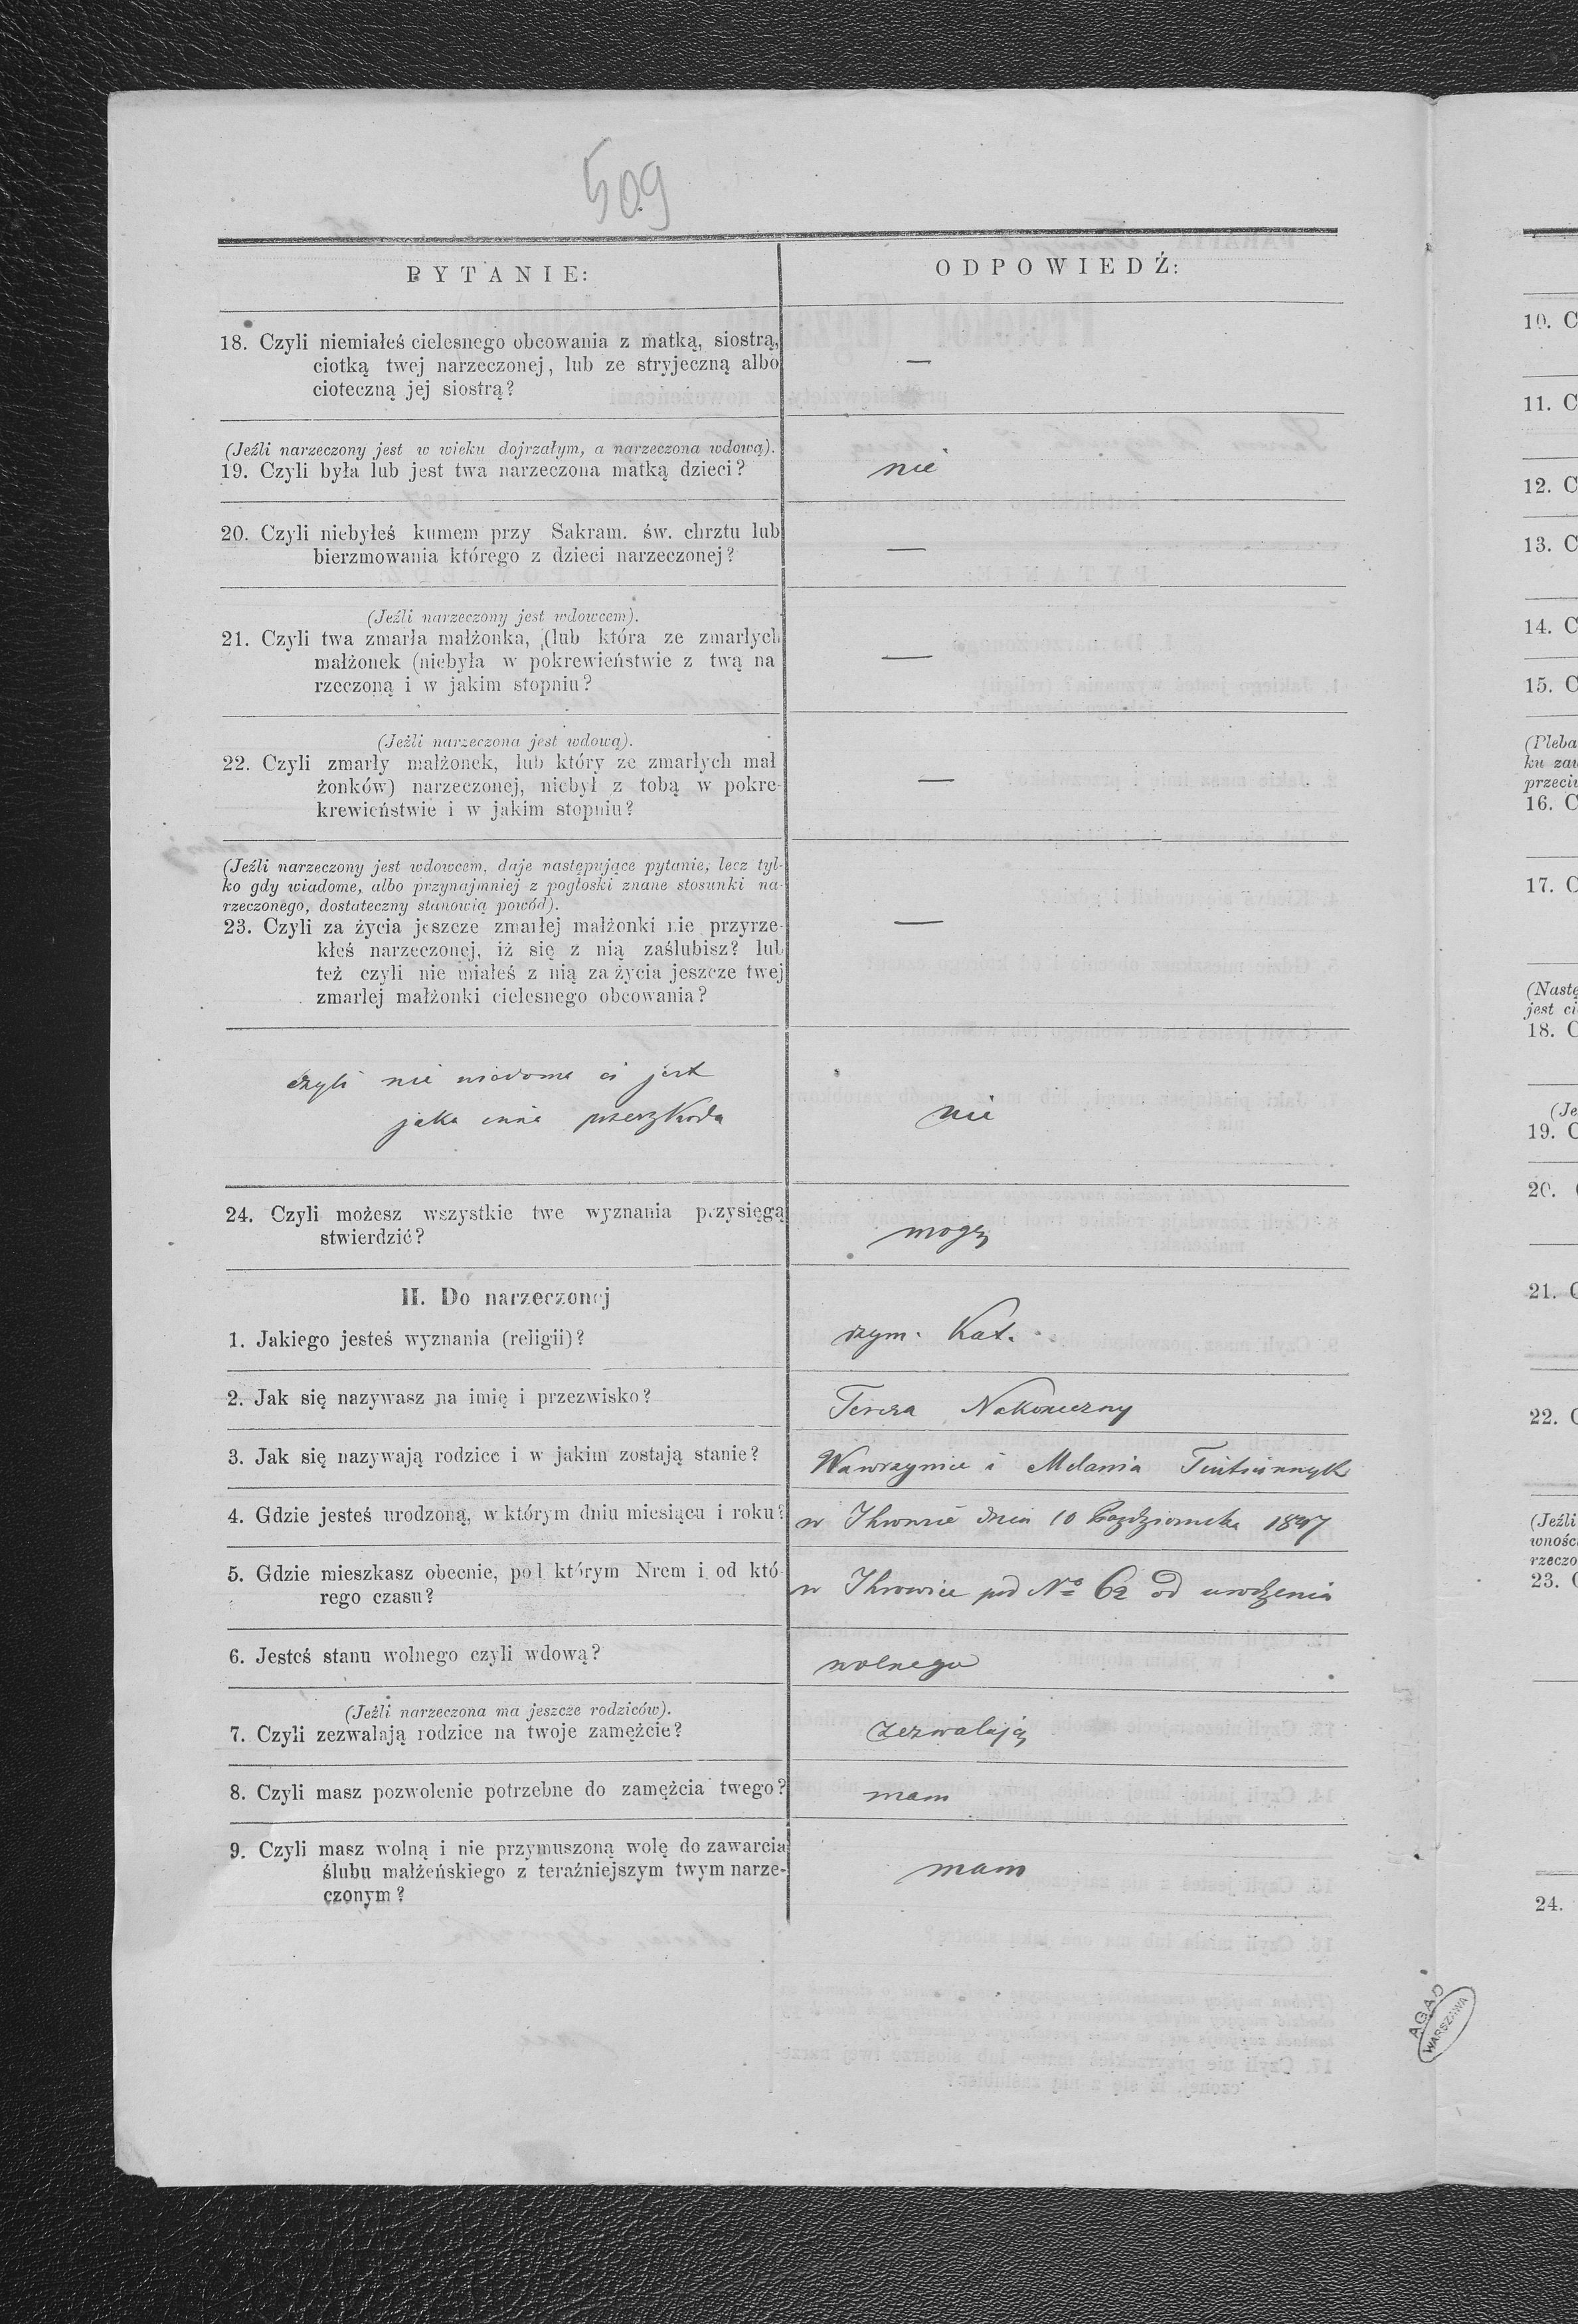 509
PYTANIE:
ODPOWIEDŹ:
18. Czyli niemiałeś cielesnego obcowania z matką, siostrą,
ciotką twej narzeczonej, lub ze stryjeczną albo
cioteczną jej siostrą?
—
(Jeźli narzeczony jest w wieku dojrzałym, a narzeczona wdową).
19. Czyli była lub jest twa narzeczona matką dzieci?
nie
20. Czyli niebyłeś kumem przy Sakram. św. chrztu lub
bierzmowania którego z dzieci narzeczonej?
—
(Jeźli narzeczony jest wdowcem).
21. Czyli twa zmarła małżonka, (lub która ze zmarłych
małżonek (niebyła w pokrewieństwie z twą na
rzeczoną i w jakim stopniu?
—
(Jeźli narzeczona jest wdową).
22. Czyli zmarły małżonek, lub który ze zmarłych mał
żonków) narzeczonej, niebył z tobą w pokre-
krewieństwie i w jakim stopniu?
—
(Jeźli narzeczony jest wdowcem, daje następujące pytanie, lecz tyl-
ko gdy wiadome, albo przynajmniej z pogłoski znane stosunki na-
rzeczonego, dostateczny stanowią powód).
23. Czyli za życia jeszcze zmarłej małżonki nie przyrze-
kłeś narzeczonej, iż się z nią zaślubisz? lub
też czyli nie miałeś z nią za życia jeszcze twej
zmarłej małżonki cielesnego obcowania?
—
czyli nie wiadoma ci jest
jaka inna przeszkoda
nie
24. Czyli możesz wszystkie twe wyznania przysięgą
stwierdzić?
mogę
II. Do narzeczonej
1. Jakiego jesteś wyznania (religii)?
rzym. Kat.
2. Jak się nazywasz na imię i przezwisko?
Teresa Nakoneczny
3. Jak się nazywają rodzice i w jakim zostają stanie?
Wawrzyniec i Melania
4. Gdzie jesteś urodzoną, w którym dniu miesiącu i roku?
w dnia 10 Października 1897
5. Gdzie mieszkasz obecnie, pod którym Nrem i od któ-
rego czasu?
w Ihrowice pod No 62 od urodzenia
6. Jesteś stanu wolnego czyli wdową?
wolnego
(Jeźli narzeczona ma jeszcze rodziców).
7. Czyli zezwalają rodzice na twoje zamęźcie?
zezwalają
8. Czyli masz pozwolenie potrzebne do zamęźcia twego?
mam
9. Czyli masz wolną i nie przymuszoną wolę do zawarcia
ślubu małżeńskiego z teraźniejszym twym narze-
czonym?
mam
10. C
11. C
12. C
13. C
14. C
15. C
(Pleba
ku zau
przeciw
16. C
17. C
(Nastę
jest ci
18. C
(Je
19. C
20.
21. C
22. C
(Jeźli
wnośc
rzeczo
23. C
24.
AGAD
WARSZAWA